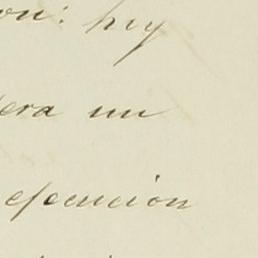 on: hoy
era un
ejecución